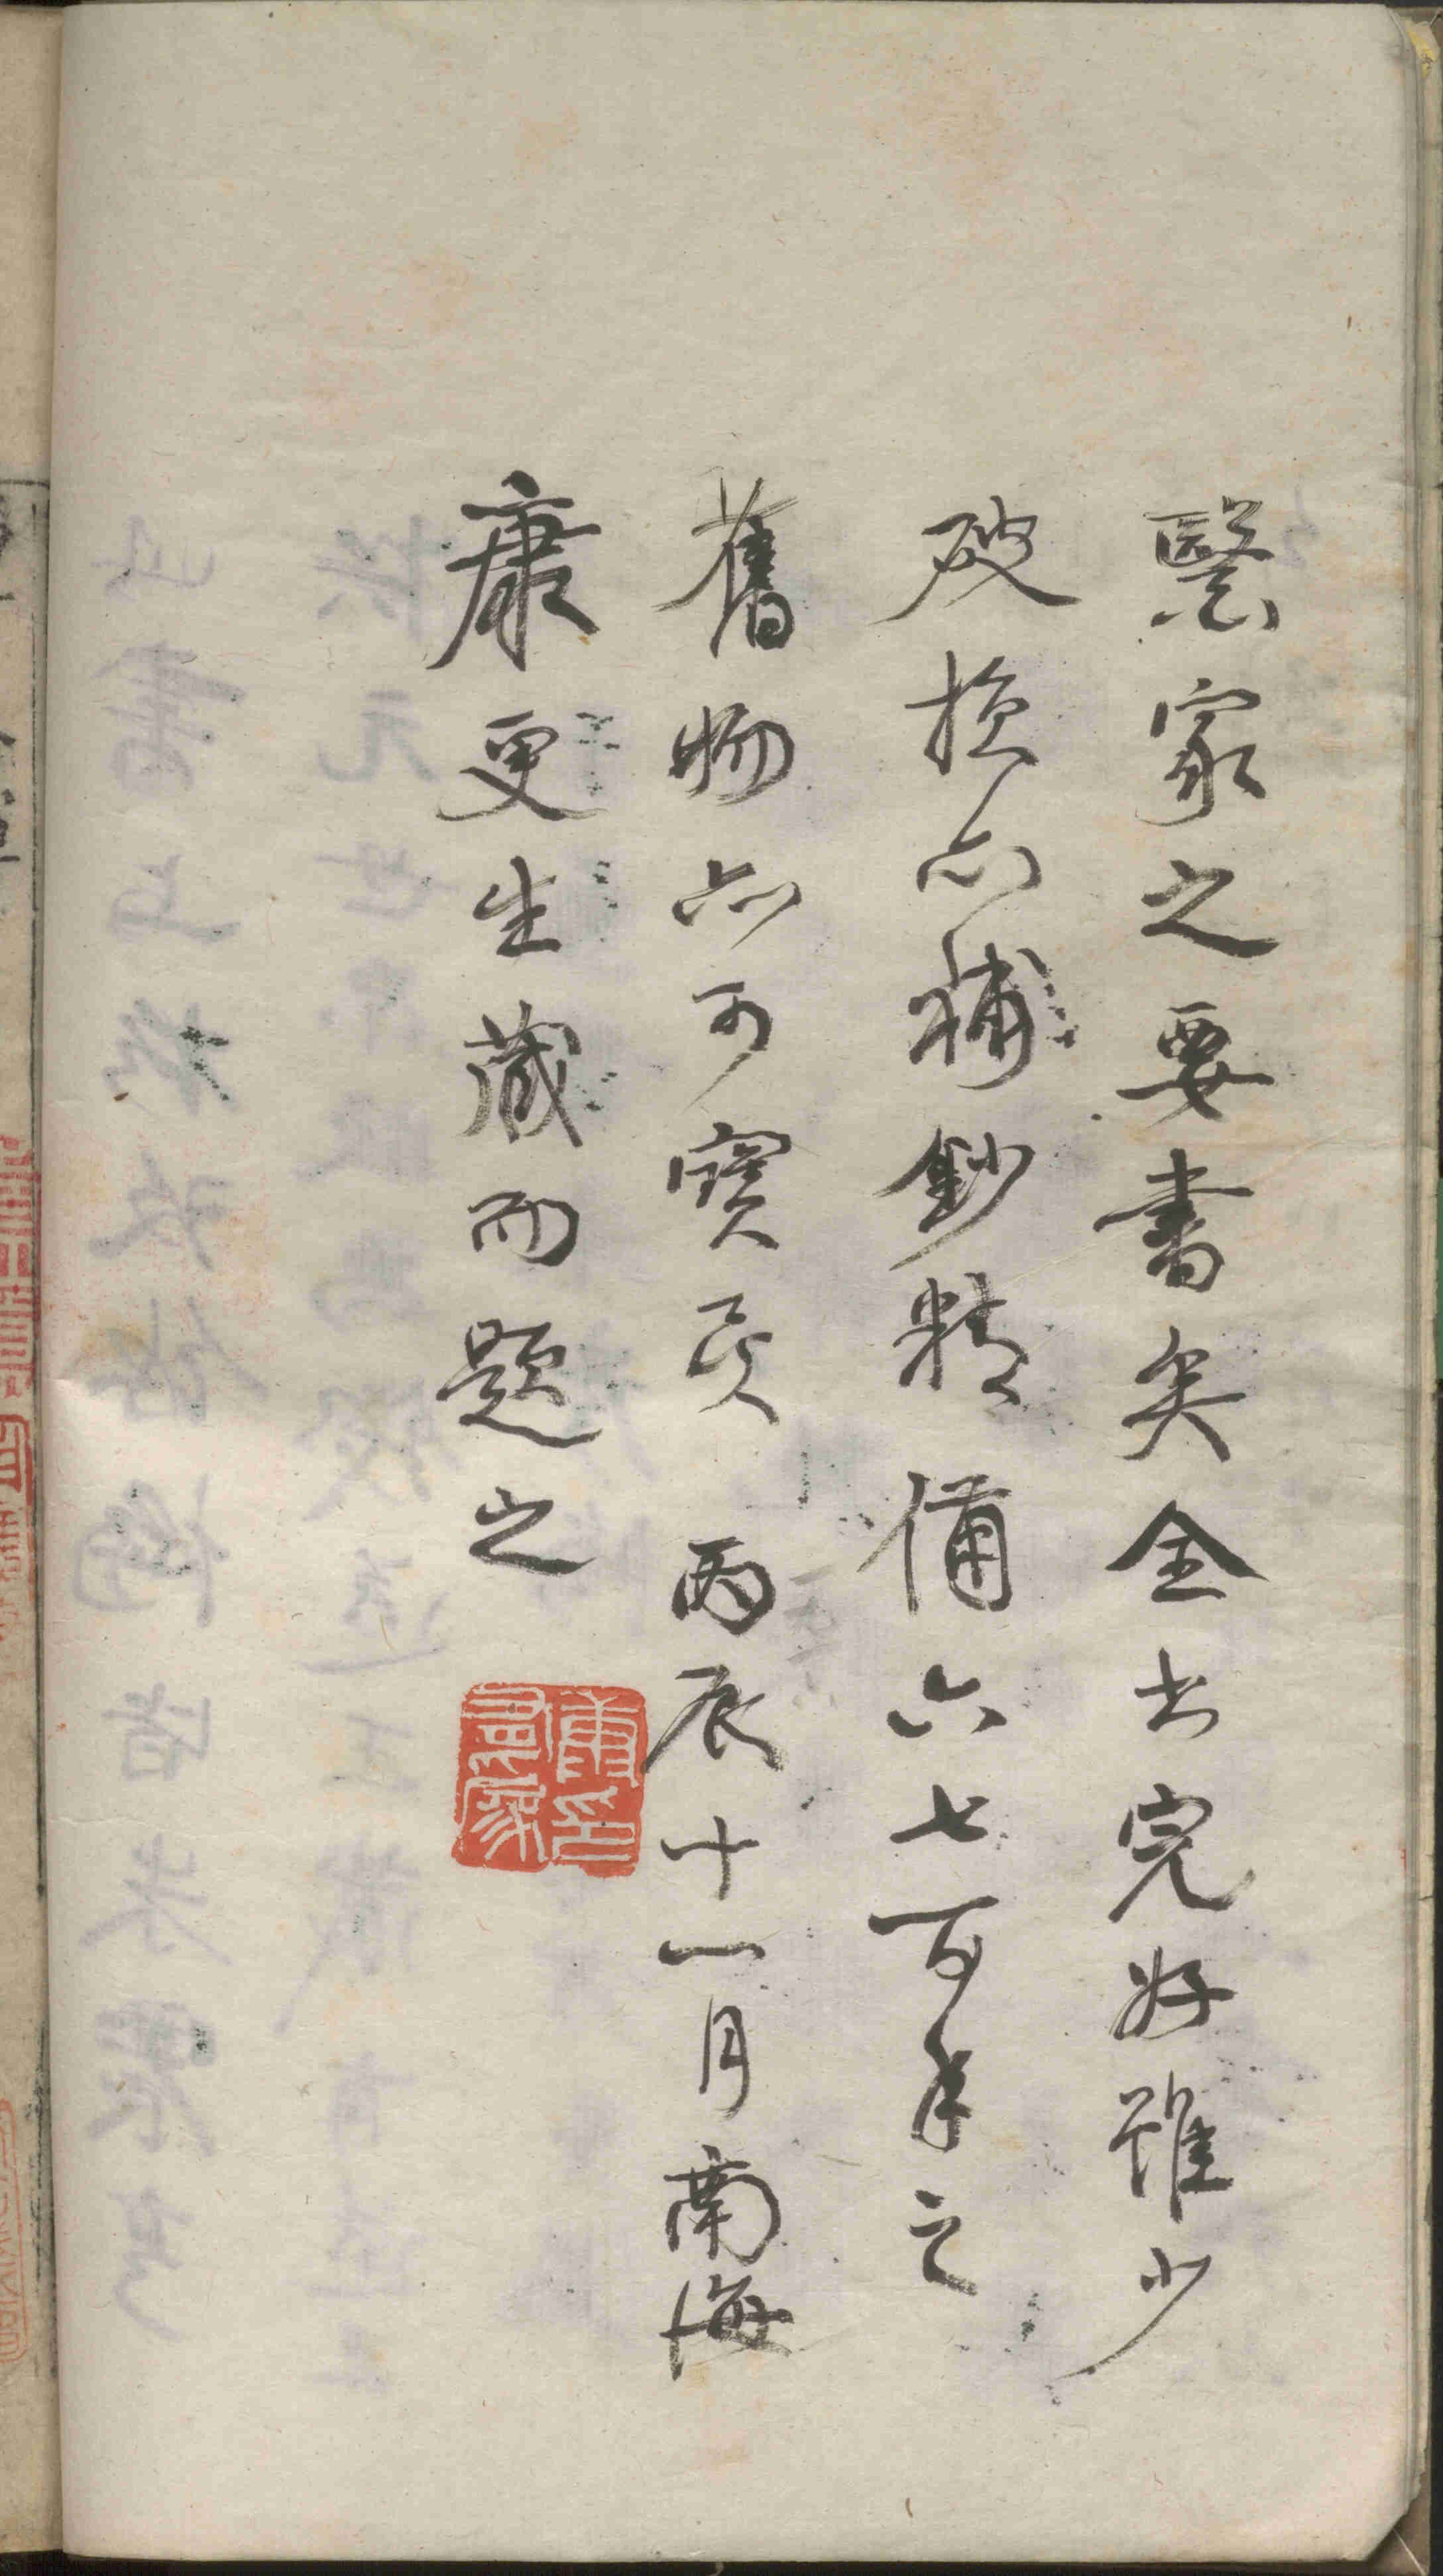 醫家之要書矣全書完好雖少
破損亦補鈔精備六七百年之
舊物亦可寶 丙辰十一月南海
康更生藏而題之
康印有爲